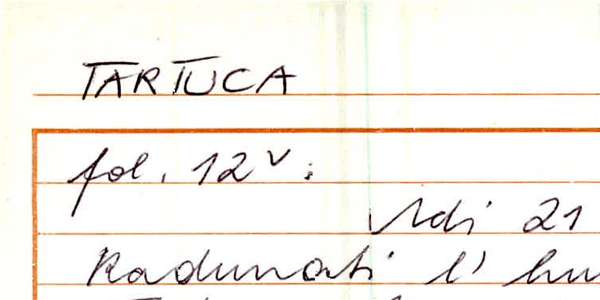 TARTUCA
fol. 12v:
Adi 21
Radunati l'